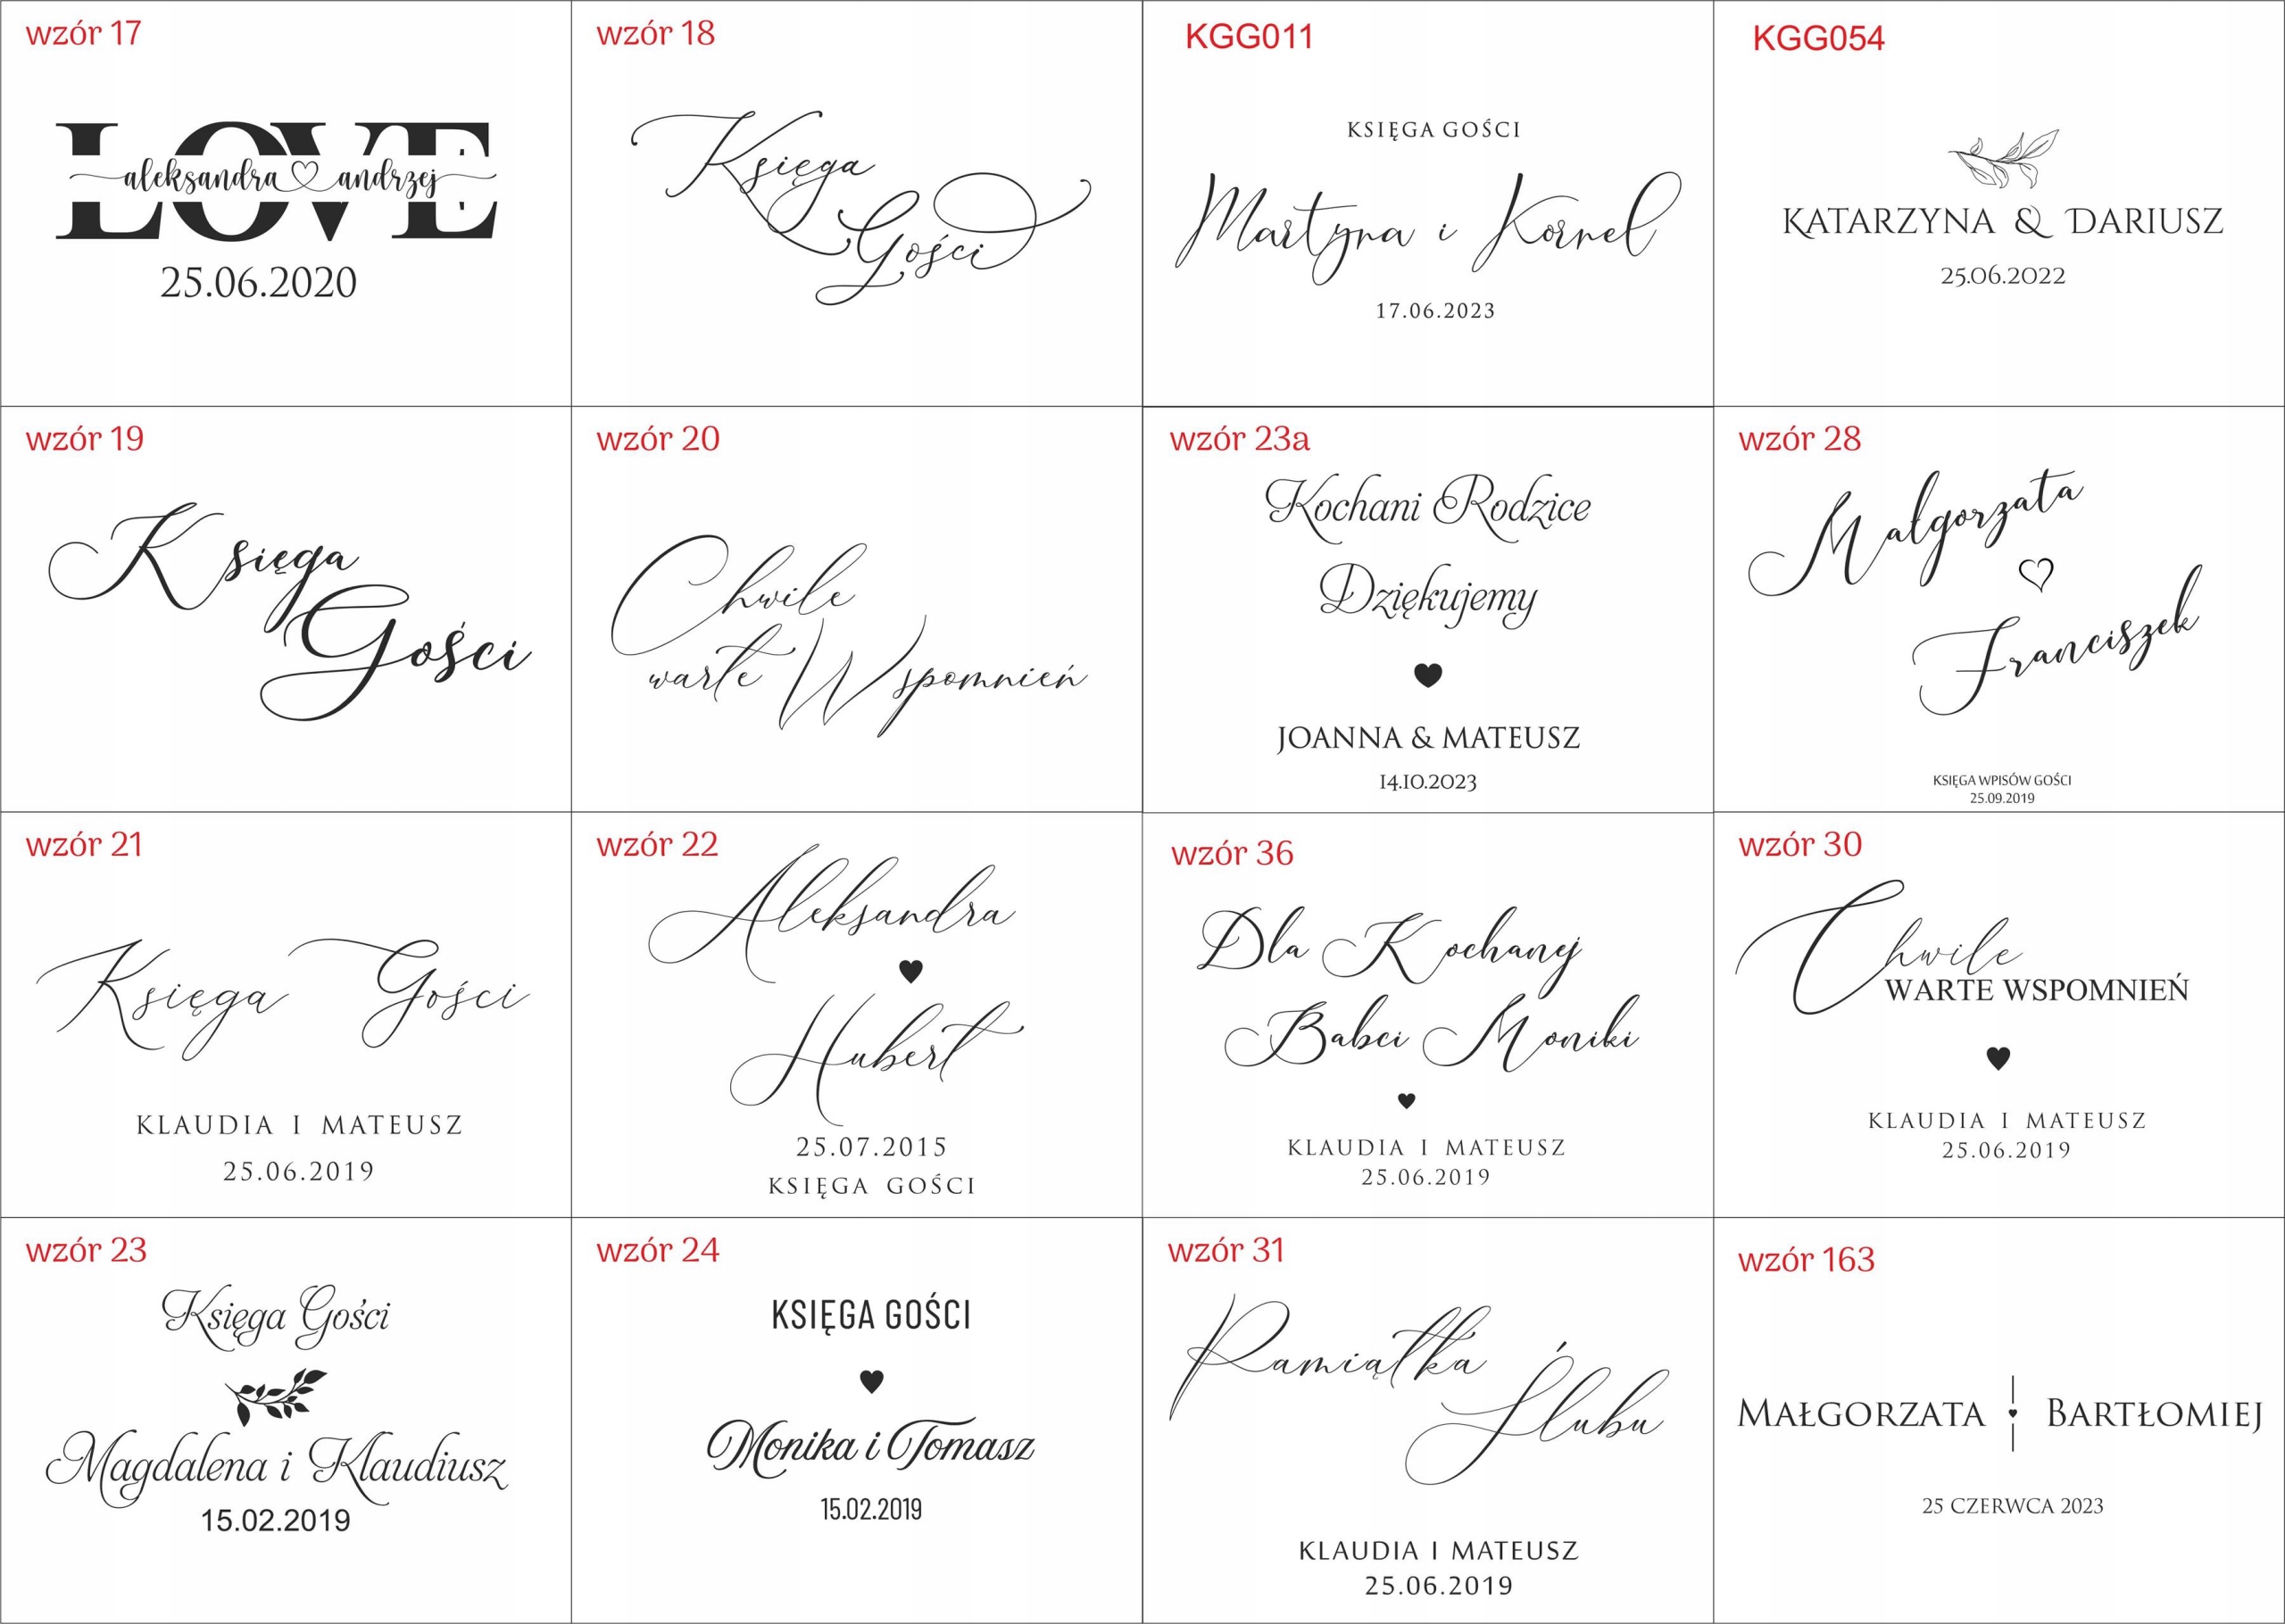 wzór 17
LOVE
aleksandra andrzej
25.06.2020
wzór 18
Księga
Gości
KGG011
KSIĘGA GOŚCI
Martyna i Kornel
17.06.2023
KGG054
KATARZYNA & DARIUSZ
25.06.2022
wzór 19
Księga
Gości
wzór 20
Chwile
warte Wspomnień
wzór 23a
Kochani Rodzice
Dziękujemy
JOANNA & MATEUSZ
14.10.2023
wzór 28
Małgorzata
Franciszek
KSIĘGA WPISÓW GOŚCI
25.09.2019
wzór 21
Księga Gości
KLAUDIA I MATEUSZ
25.06.2019
wzór 22
Aleksandra
Hubert
25.07.2015
KSIĘGA GOŚCI
wzór 36
Dla Kochanej
Babci Moniki
KLAUDIA I MATEUSZ
25.06.2019
wzór 30
Chwile
WARTE WSPOMNIEŃ
KLAUDIA I MATEUSZ
25.06.2019
wzór 23
Księga Gości
Magdalena i Klaudiusz
15.02.2019
wzór 24
KSIĘGA GOŚCI
Monika i Tomasz
15.02.2019
wzór 31
Pamiątka
Ślubu
KLAUDIA I MATEUSZ
25.06.2019
wzór 163
MAŁGORZATA BARTŁOMIEJ
25 CZERWCA 2023